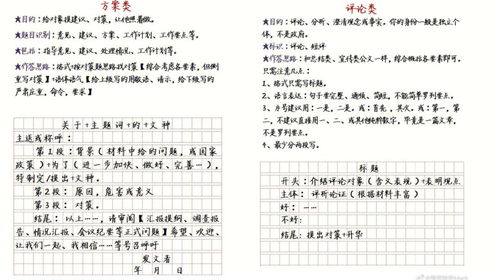 方案类
★目的：给对象提建议、对策，让他照着做。
★题目识别：意见、建议、方案、工作计划、工作要点等。
★包括：指导意见、建议、处理情况、工作计划等。
★作答思路：格式+按对策题思路找对策【综合考虑各要素，但侧
重写对策】+语体语气【给上级写的用敬语、请示，给下级写的
严肃庄重，命令，要求】
关于+主题词+的+文种
主送或称呼：
第1段：背景（材料中给的问题，或国家
政策）+为了（进一步加快、做好、完善…），
特制定/提出+文种。
第2段：原因，危害或意义
第3段：对策。
结尾：以上……，请审阅【汇报提纲、调查报
告、情况汇报、会议纪要等正式问题】希望、欢迎、
让我们一起、我相信……等号召呼吁
发文者
年 月 日
评论类
★目的：评论、分析、澄清观念或事实。你的身份一般是独立个
体，不是政府。
★标识：评论、短评
★作答思路：和总结类、宣传类公文一样，综合概括各要素即可。
只需注意几点：
1、格式只需写标题。
2、语言表述：句子要完整、通顺、简短，不能简单罗列要点。
3、分号建议用：一是，二是。或：首先，其次。或：第一，第
二，不建议直接用一、二或其他纯粹数字，毕竟是一篇文章，
不是罗列要点。
4、最少分两段写。
标题
开头：介绍评论对象（含义表现）+表明观点
主体：评析论证（根据材料丰富）
好：……
不好：
结尾：提出对策+升华